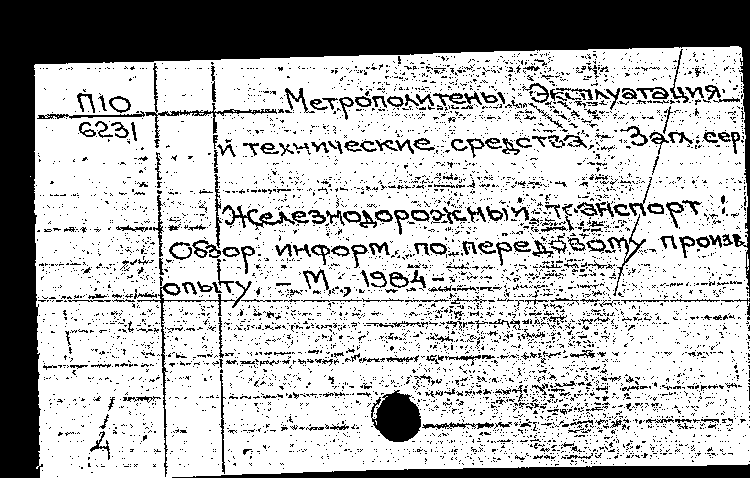 П10
6231
Метрополитены. Эксплуатация
и технические средства. - Загл. сер.
Железнодорожный транспорт :
Обзор. информ. по передовому произв.
опыту. - М., 1984 -
Д